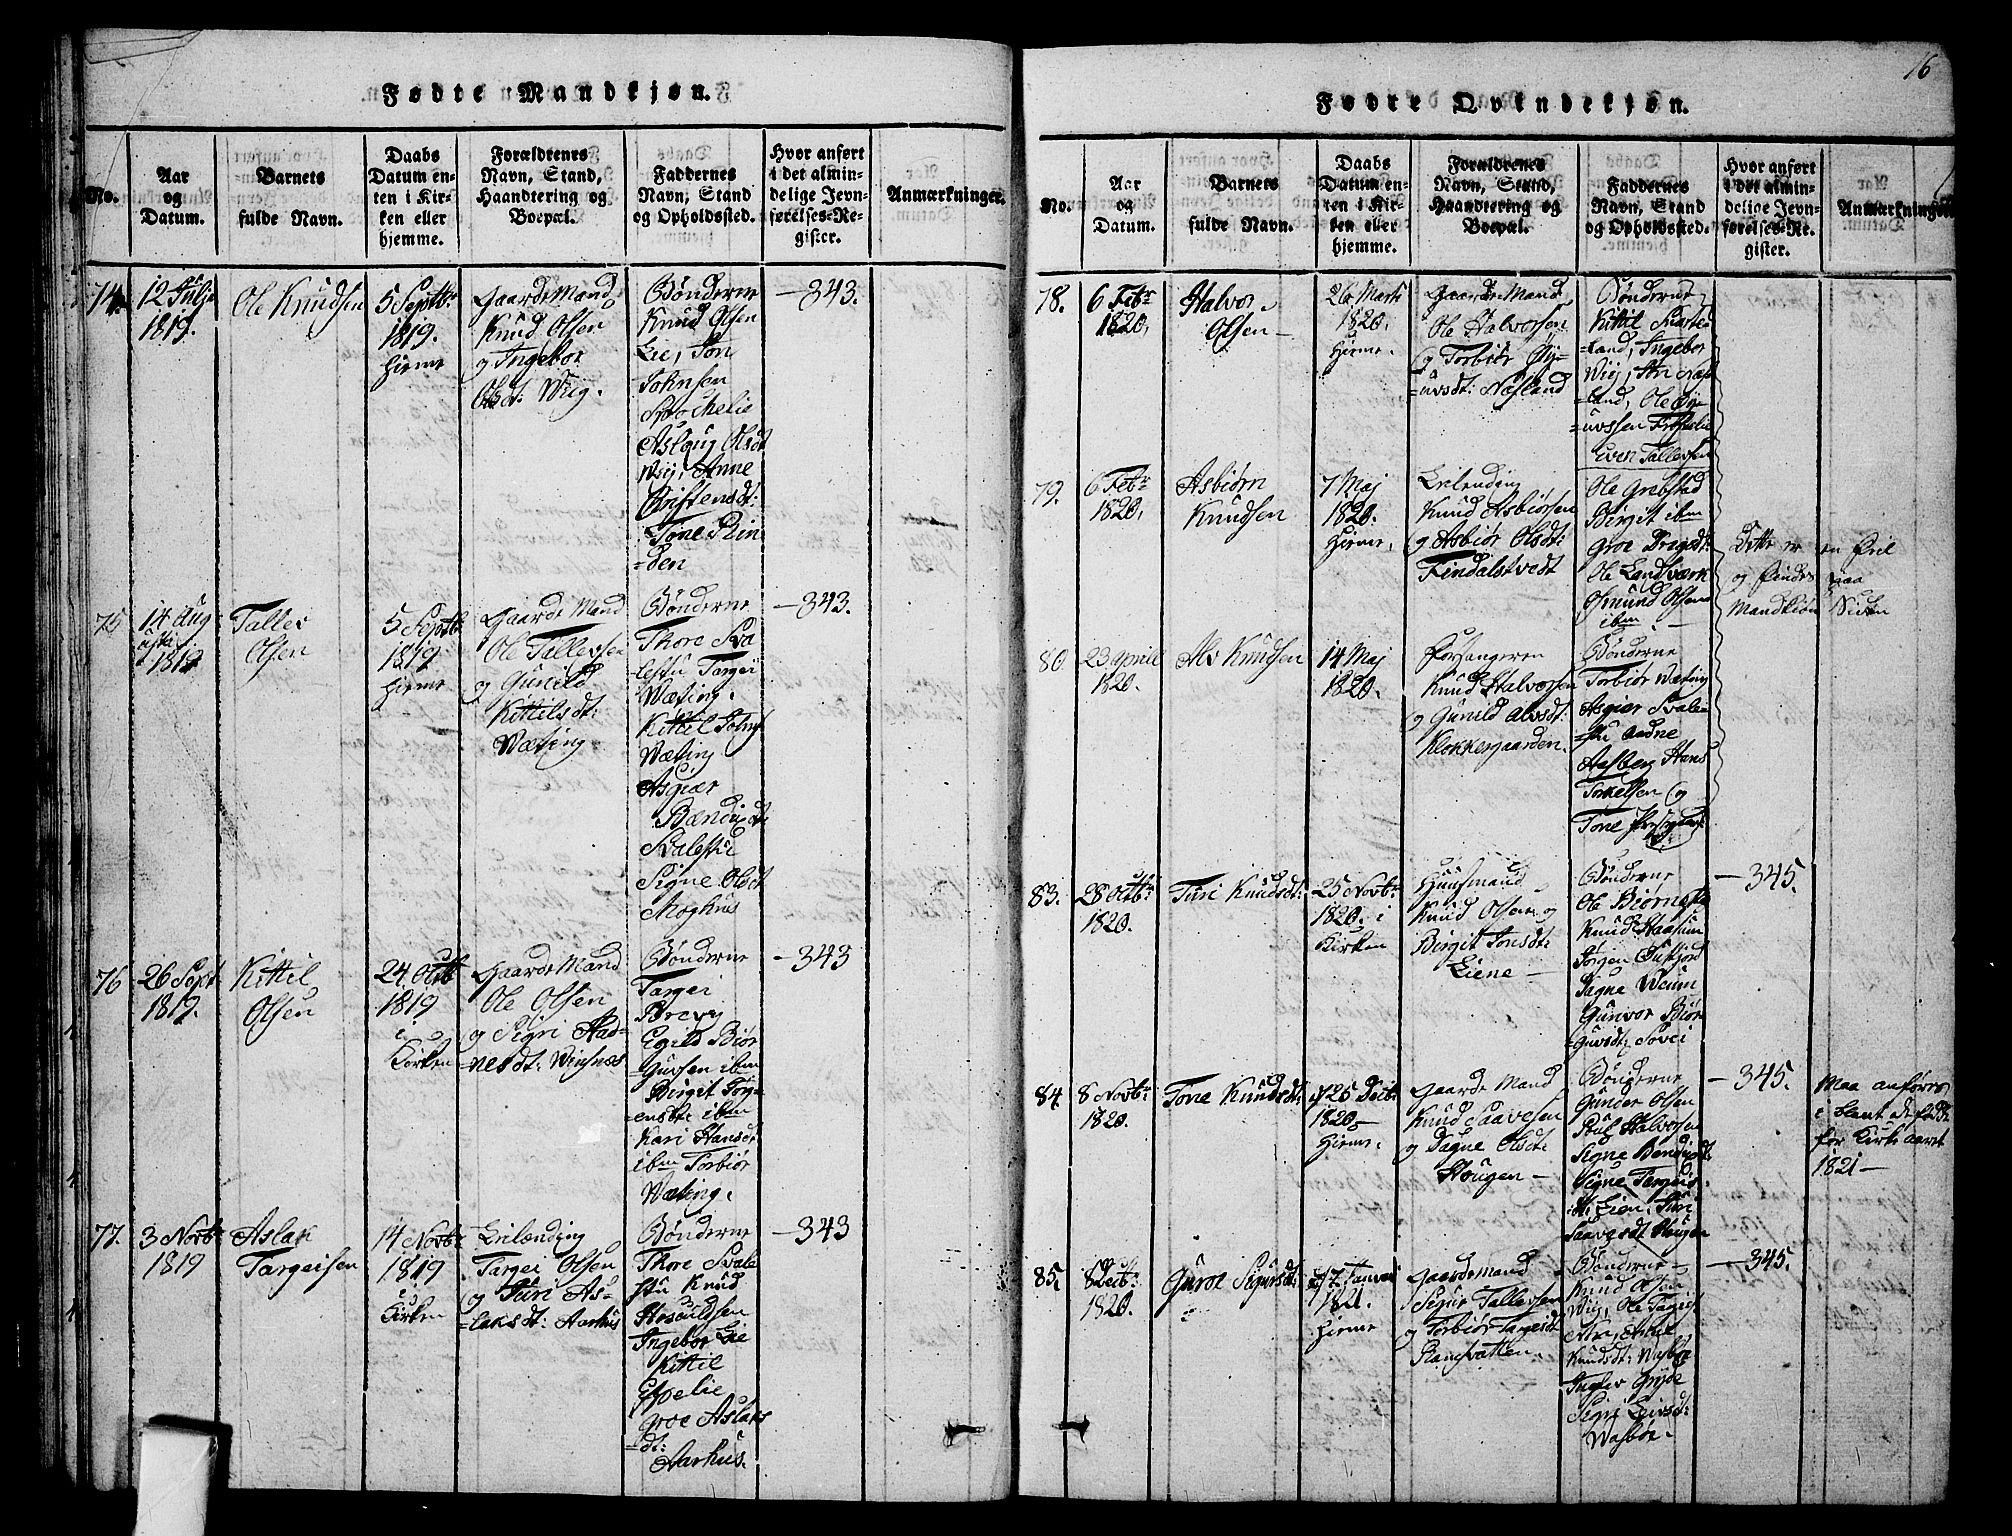 Fødte Mandkjøn.
No.
Aar
og
Datum.
Barnets
fulde Navn.
Daabs
Datum en-
ten i Kir-
ken eller
hjemme.
Forældrenes
Navn, Stand,
Haandtering og
Boepæl.
Faddernes
Navn, Stand
og Opholdssted.
Hvor anført
i det almin-
delige Jevn-
førelses-Re-
gister.
Anmærkninger.
74.
12 Julj
1819.
Ole Knudsen
5 Septbr
1819.
hieme
GaardeMand
Knud Olsen
og Ingebor
Olsdt: Wiig.
Bønderne
Knud Olsen
Lie, Jon
Johnsen
Aslaug Olsdt
Wiij, Anne
Christensdt:
Tone Rin
=den
—343.
75
14 Aug
1819
Tallev
Olsen
5 Septb
1819
hieme
Gaarde Mand
Ole Tallevsen
og Gunild
Kittelsdt:
Wæting
Bønderne
Thore Sva
lestu Targei
Wæting.
Kittil John
Wæting
Asgiær
Bændixdt
Svalestu
Signe Olsdt
Moghus
—343.
76
26 Sept
1819.
Kittil
Olsen
24. Octb
1819
i
Kirken
GaardeMand
Ole Olsen
og Sigri Aad=
nesdt: Winsnes
Bønderne
Targei
Brevig
Egild Biør
Gufsen ibm
Birgit Jørg
=ensdt: ibm
Kari Hansdt
ibm Torbiør
Wæting.
—343
77.
3 Novbr
1819
Aslak
Targeisen
14 Novbr
1819
i
Kirken
Leilænding
Targei Olsen
og Turi As=
laksdt: Aarhus
Bønderne
Thore Svale
stu Knud
Ingebor Lie
Kittil
Espelie
Groe Aslaks
=dt:
Aarhus.
—343
16
Fødte Qvindekjøn.
No.
Aar
og
Datum.
Barnets
fulde Navn.
Daabs
Datum en-
ten i Kir-
ken eller
hjemme.
Forældrenes
Navn, Stand,
Haandtering og
Boepæl.
Faddernes
Navn, Stand
og Opholdssted.
Hvor anført
i det almin-
delige Jevn-
førelses-Re-
gister.
Anmærkninger
78.
6 Febr
1820,
Halvor
Olsen—
26 Marts
1820.
hieme.
Gaarde Mand
Ole Halvorsen
og Torbiør Øy=
uvsdt: Næsland
Bønderne
Kittil Svarte
=land, Ingebor
Wiij, Jon Næs
=land, Ole Øy=
=uvssen
Even Tallevsen
79.
6 Febr
1820,
Asbiørn
Knudsen
7 Maj
1820.
hieme,
Leilending
Knud Asbiørsen
og Asbiør Olsdt:
Findalstvedt
Ole Grebstad
Birgit ibm
Groe Dregsdt:
Ole Landsværk
Osmund Olsen
ibm.
Dette er en Feil
og findes paa
Mandkiøn Siden
80.
23 Aprile
1820.
Alv Knudsen
14 Maj
1820.
Forsangeren
Knud Halvorsen
og Gunild Alvsdt:
Klokkergaarden.
Bønderne
Torbiør Wæting
Asgiær Svale
stu Aadne
Aasberg Hans
Torkelsen og
Tone
83.
28 Octb:
1820.
Turi Knudsdt:
25 Novbr
1820. i
Kirken
Huusmand
Knud Olsen og
Birgit Jonsdt:
Liene —
Bønderne
Ole Biørnst
Knud Haasum
Jørgen Sustjord
Dagne Weum
Gunvor Biør
=guvsdt: Sovei
—345.
84.
8 Novbr
1820.
Tone Knudsdt:
25 Decbr
1820
hieme.
Gaarde Mand
Knud Saavesen
og Dagne Olsdt:
Hougen —
Bønderne
Gunder Olsen
Poul Halvorsen
Signe Bendixdt:
Signe Targeis=
dt: Lien. Turi
Saavesdt Hougen
—345.
Maa anføres
i de fødte
for Kirke aaret
1821 —
85.
8 Decbr:
1820.
Guroe Sigursdt:
17 Januari
1821.
hieme
Gaardemand
Sigur Tallevsen
og Torbiør Targeisdt
Ramsvatten.
Bønderne
Knud Olsen
Wiij, Ole Targeis
Knudsdt: Wasbøe
Tallev Gryde
Signe Leivsdt:
Wasbøe.
—345.